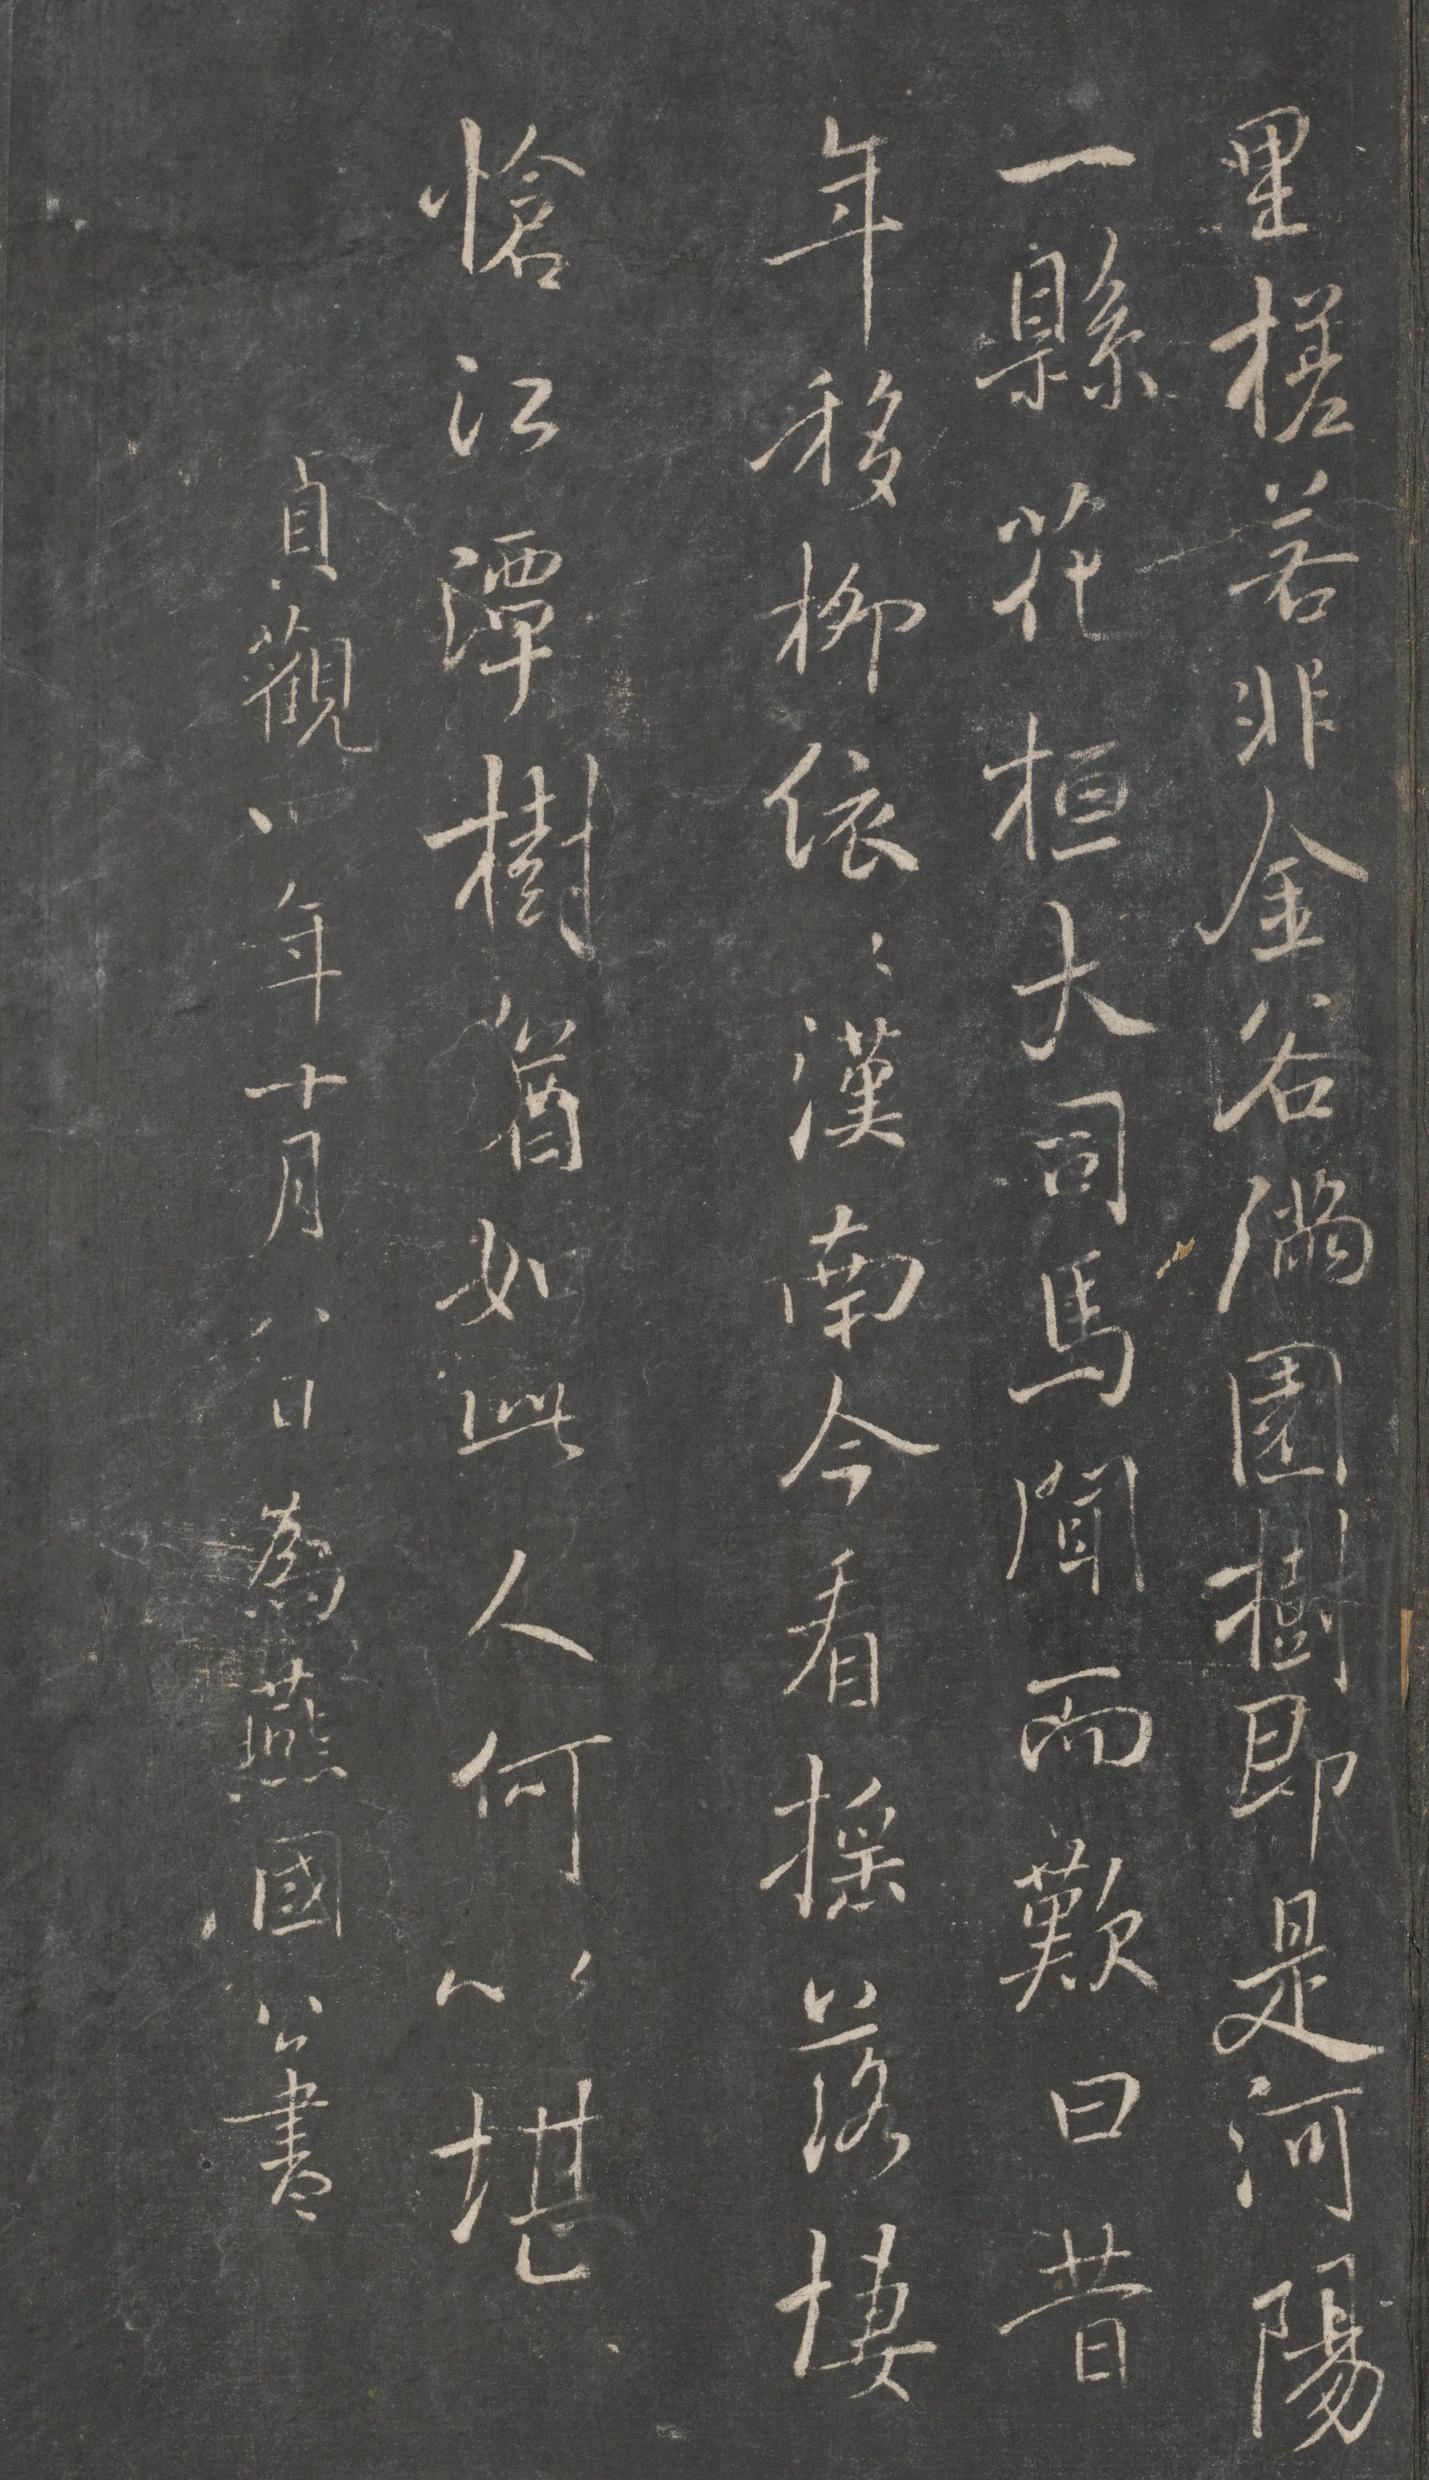 里槎若非金谷滿園樹即是河陽
一縣花桓大司馬聞而歎曰昔
年移柳依〻漢南今看搖落悽
愴江潭樹猶如此人何以堪
貞觀八年十月八日為燕國公書